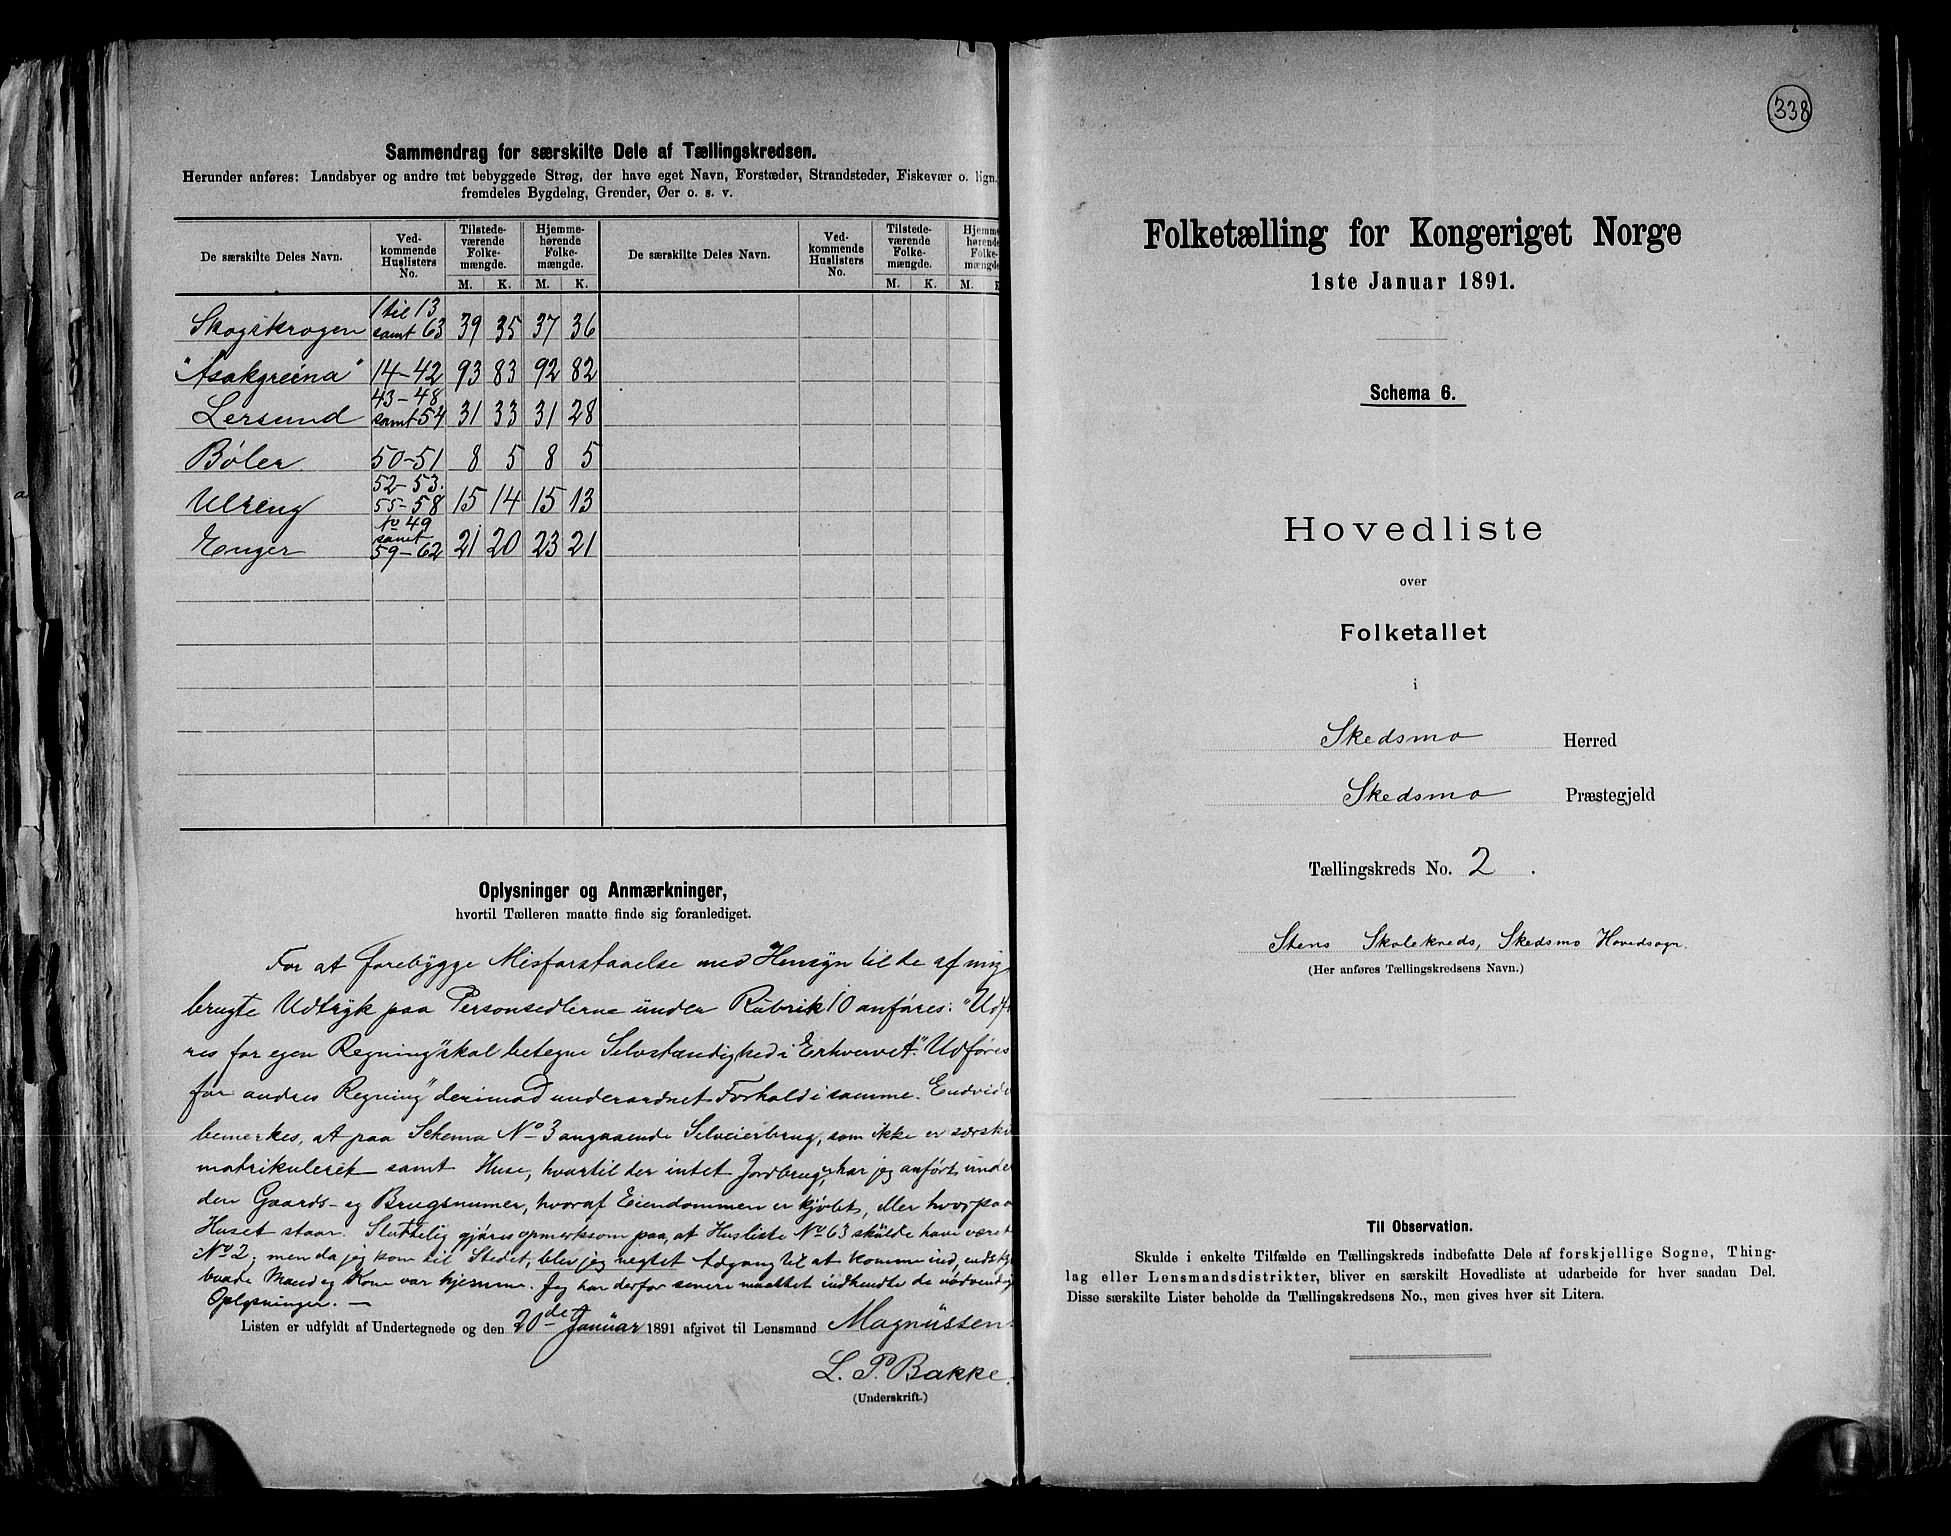 Sammendrag for særskilte Dele af Tællingskredsen.
Herunder anføres: Landsbyer og andre tæt bebyggede Strøg, der have eget Navn, Forstæder, Strandsteder, Fiskevær o. lign.
fremdeles Bygdelag, Grender, Øer o. s. v.
De særskilte Deles Navn. Ved-kommende Huslisters No. Tilstede-værende Folke-mængde. Hjemme-hørende Folke-mængde. De særskilte Deles Navn. Ved-kommende Huslisters No. Tilstede-værende Folke-mængde. Hjemme-hørende Folke-mængde
M. K. M. K. M. K. M.
Skogskrogen 1 til 13 samt 63 39 35 37 36
"Asakgreina" 14-42 93 83 92 82
Lersund 43-48 samt 54 31 33 31 28
Bøler 50-51 8 5 8 5
Ulreng 52-53. 55-58 15 14 15 13
Enger No 49 samt 59-62 21 20 23 21
Oplysninger og Anmærkninger,
hvortil Tælleren maatte finde sig foranlediget.
For at forebygge Misforstaaelse med Hensyn til de af mig
brugte Udtryk paa Personsedlerne under Rubrik 10 anføres: "Udfø
res for egen Regning" skal betegne Selvstændighed i Erhvervet. "Udføres
for andres Regning" derimod underordnet Forhold i samme. Endvide
bemerkes, at paa Schema No 3 angaaende Selveierbrug, som ikke er særski
matrikuleret samt Huse, hvortil der intet Jordbrug, har jeg anført unde
den Gaards- og Brugsnumer, hvoraf Eiendommen er kjøbt, eller hvorpaa
Huset staar. Sluttelig gjøres opmerksom paa, at Husliste No 63 skulde have været
No 2; men da jeg kom til Stedet, blev jeg negtet Adgang til at komme ind, endskj
baade Mand og Kone var hjemme. Jeg har derfor senere maattet indhendte de nødvendig
Oplysninger. —
Listen er udfyldt af Undertegnede og den 20de Januar 1891 afgivet til Lensmand Magnussen
L. P. Bakke.
(Underskrift.)
338
Folketælling for Kongeriget Norge
1ste Januar 1891.
Schema 6.
Hovedliste
over
Folketallet
i
Skedsmo Herred
Skedsmo Præstegjeld
Tællingskreds No. 2.
Stens Skolekreds, Skedsmo Hovedsogn.
(Her anføres Tællingskredsens Navn.)
Til Observation.
Skulde i enkelte Tilfælde en Tællingskreds indbefatte Dele af forskjellige Sogne, Thing-
lag eller Lensmandsdistrikter, bliver en særskilt Hovedliste at udarbeide for hver saadan Del.
Disse særskilte Lister beholde da Tællingskredsens No., men gives hver sit Litera.